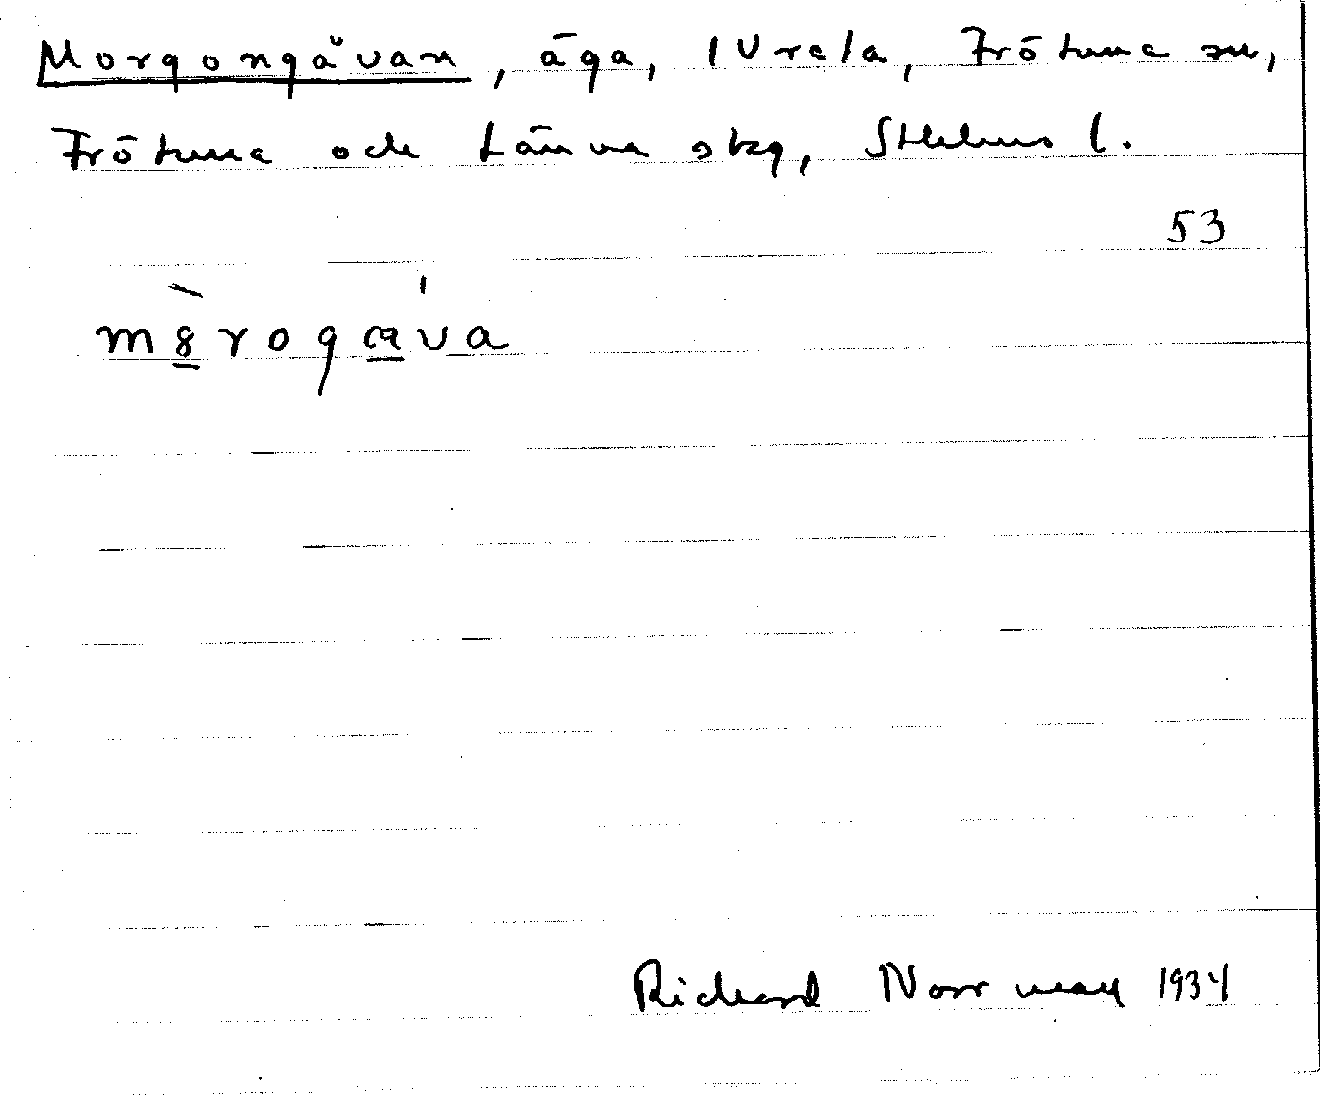 Morgongåvan, äga, i Vreta, Frötuna sn,
Frötuna och Länna skg, Sthlms l.
53
m8rogava
Richard Norrman 1934